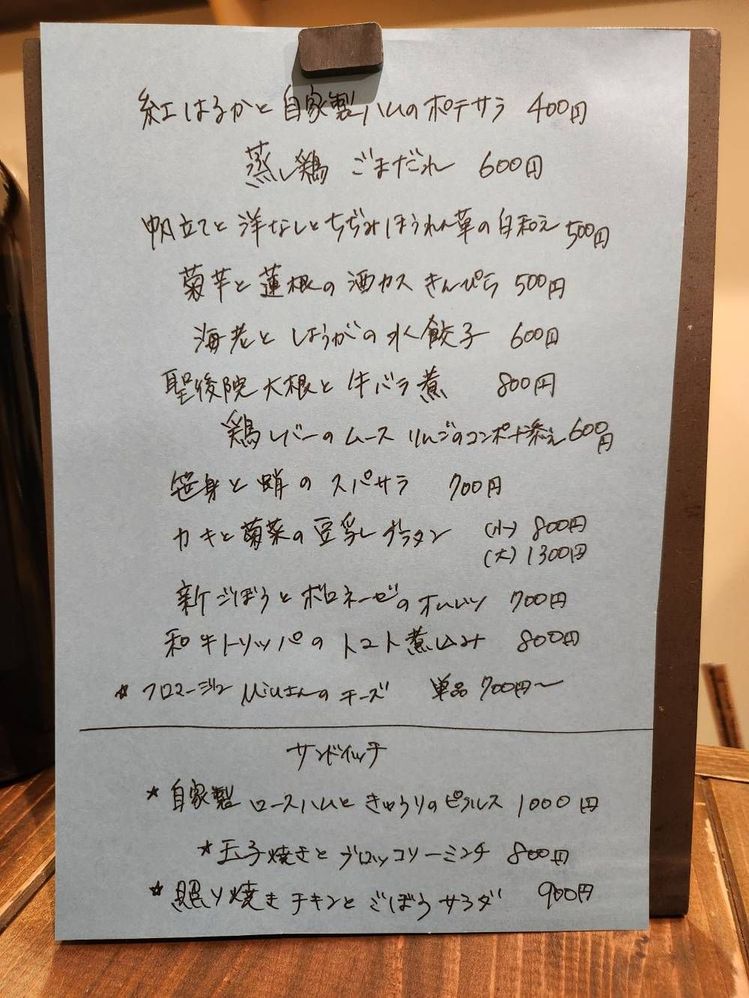 紅はるかと自家製ハムのポテサラ 400円
蒸し鶏 ごまだれ 600円
帆立てと洋なしとちぢみほうれん草の白和え 500円
菊芋と蓮根の酒カスきんぴら 500円
海老としょうがの水餃子 600円
聖後院大根と牛バラ煮 800円
鶏レバーのムース リンゴのコンポート添え 600円
笹身と蛸のスパサラ 700円
カキと菊菜の豆乳グラタン (小) 800円
(大) 1300円
新ごぼうとボロネーゼのオムレツ 700円
和牛トリッパのトマト煮込み 800円
☆ フロマージュ さんのチーズ 単品 700円〜
サンドイッチ
★ 自家製ロースハムときゅうりのピクルス 1000円
★ 玉子焼きとブロッコリーミンチ 800円
★ 照り焼きチキンとごぼうサラダ 900円